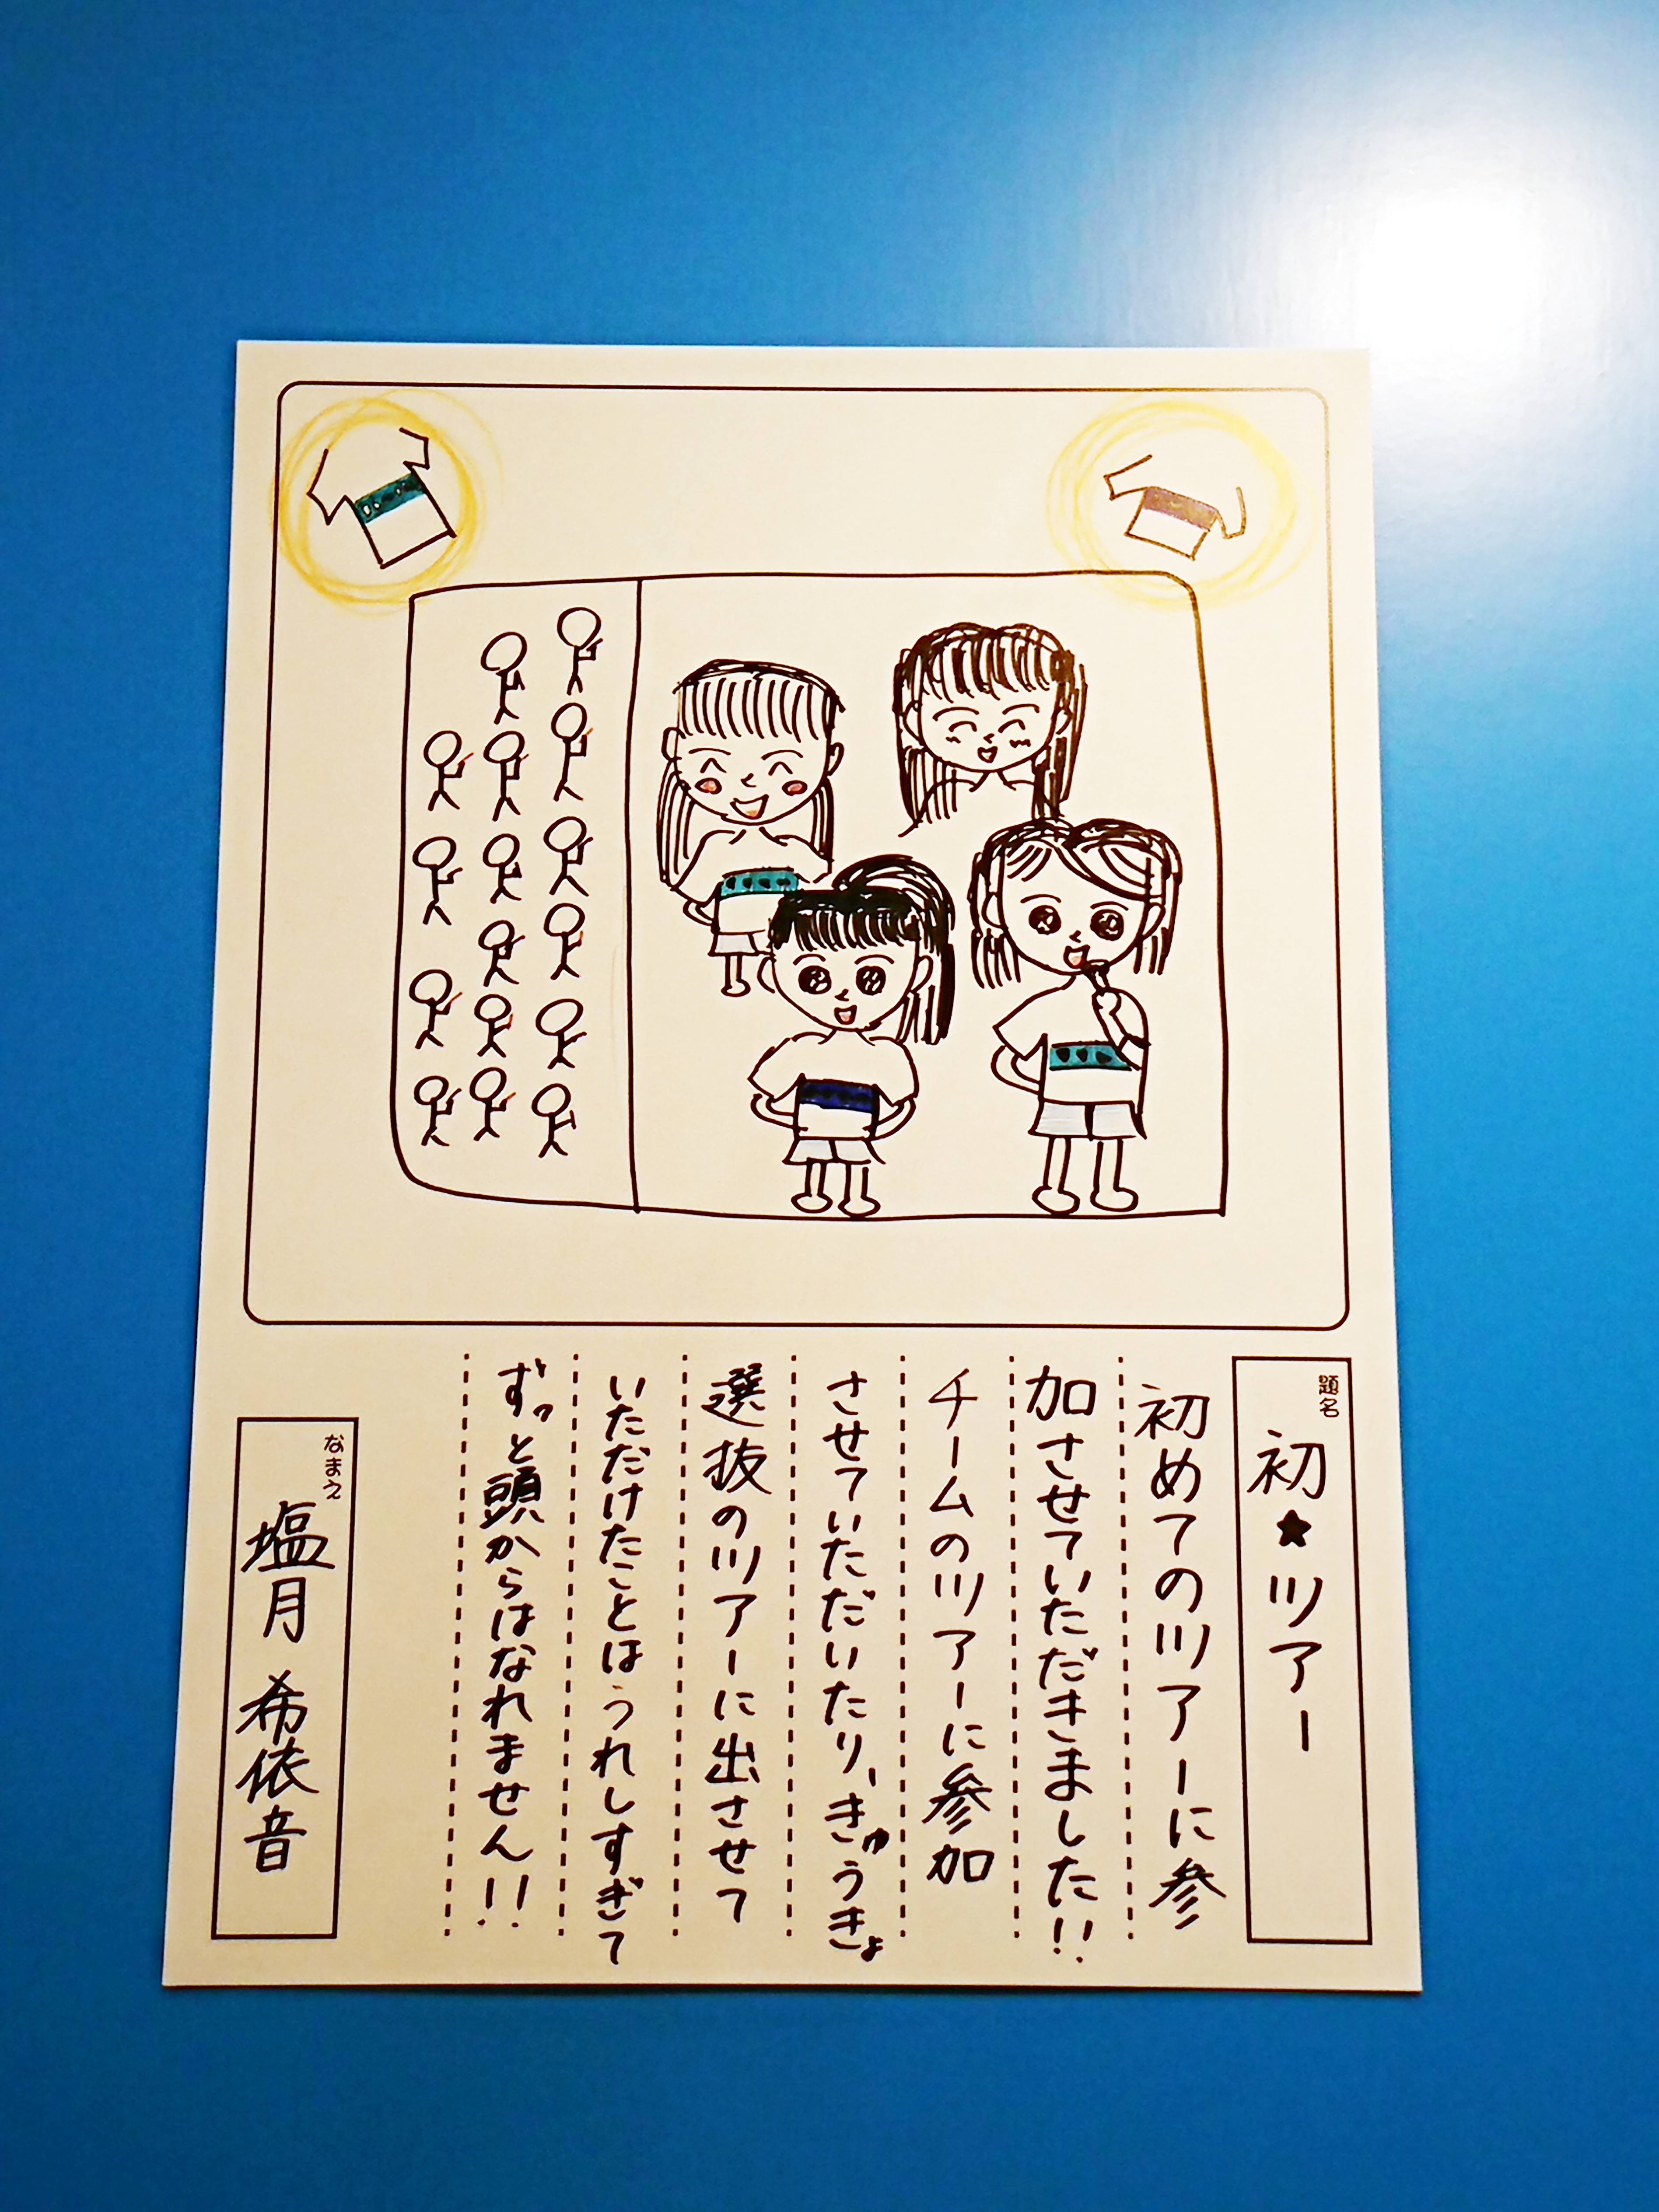 題名
初★ツアー
初めてのツアーに参
加させていただきました!!
チームのツアーに参加
させていただいたり、きゅうきょ
選抜のツアーに出させて
いただけたことはうれしすぎて
ずっと頭からはなれません!!
なまえ
塩月 希依音